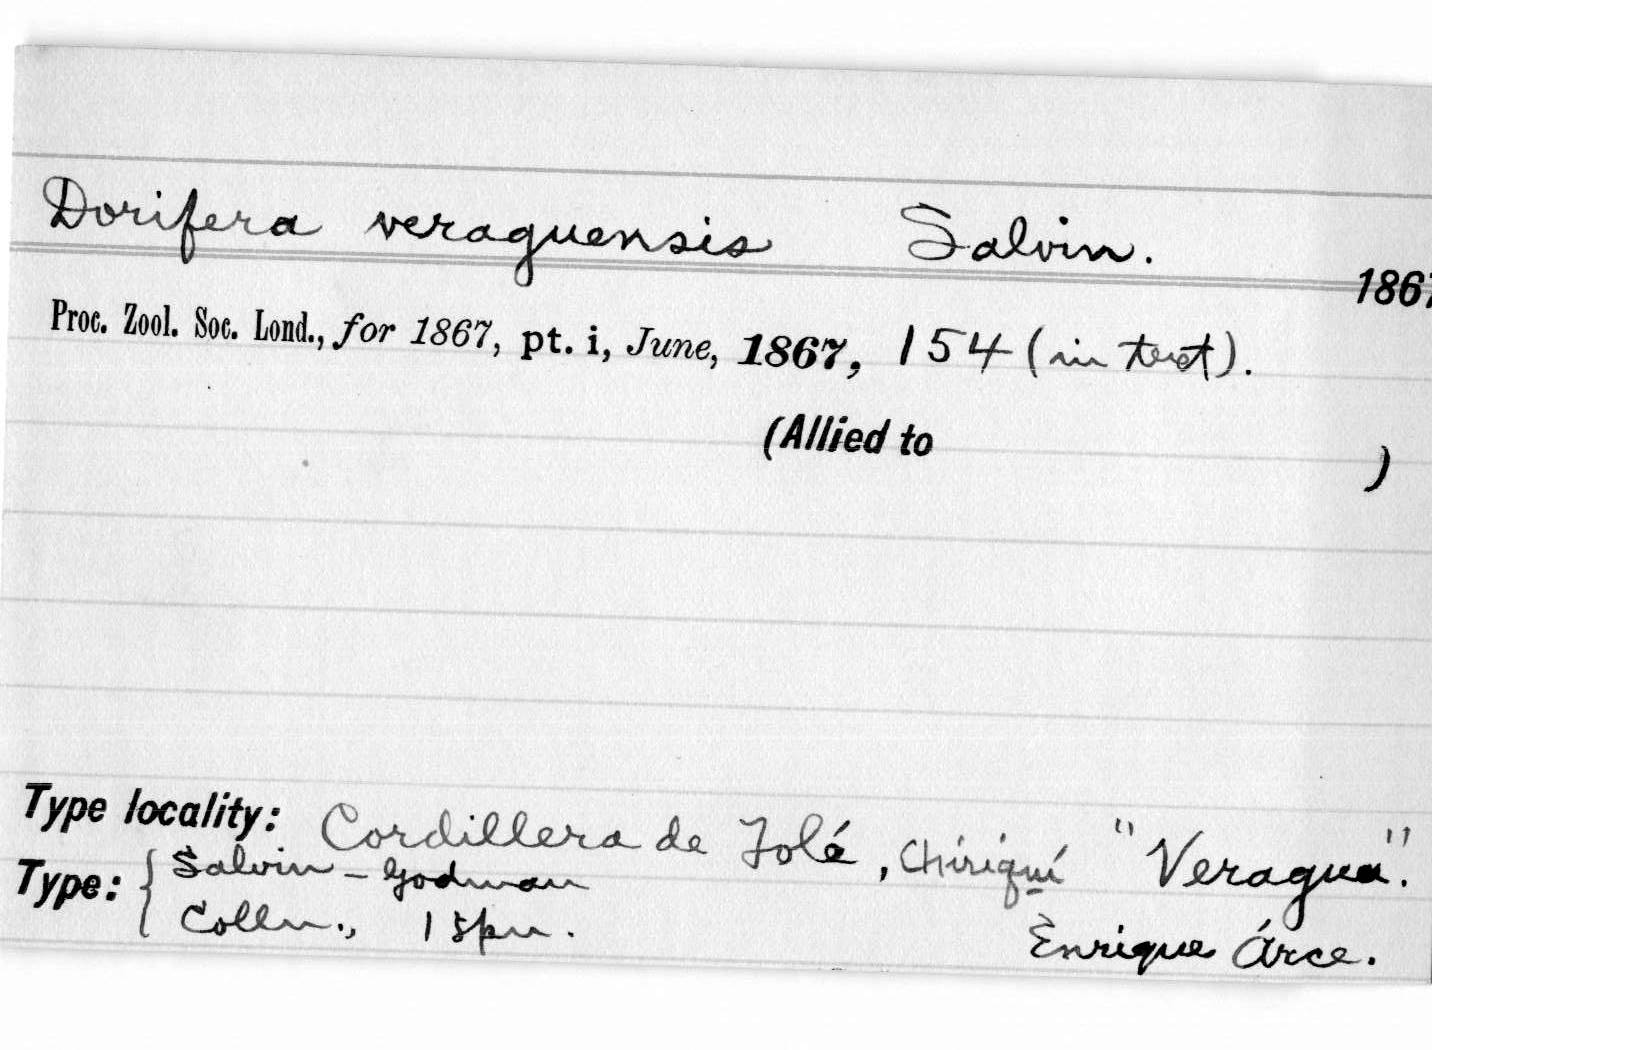 Dorifera veraguensis Salvin.
1867
Proc. Zool. Soc. Lond., for 1867, pt. i, June, 1867, 154 (in text).
(Allied to )
Type locality: Cordillera de Tolé, Chiriquí "Veragua".
Type: { Salvin-Godman
Colln., 1 spn. Enrique Árce.